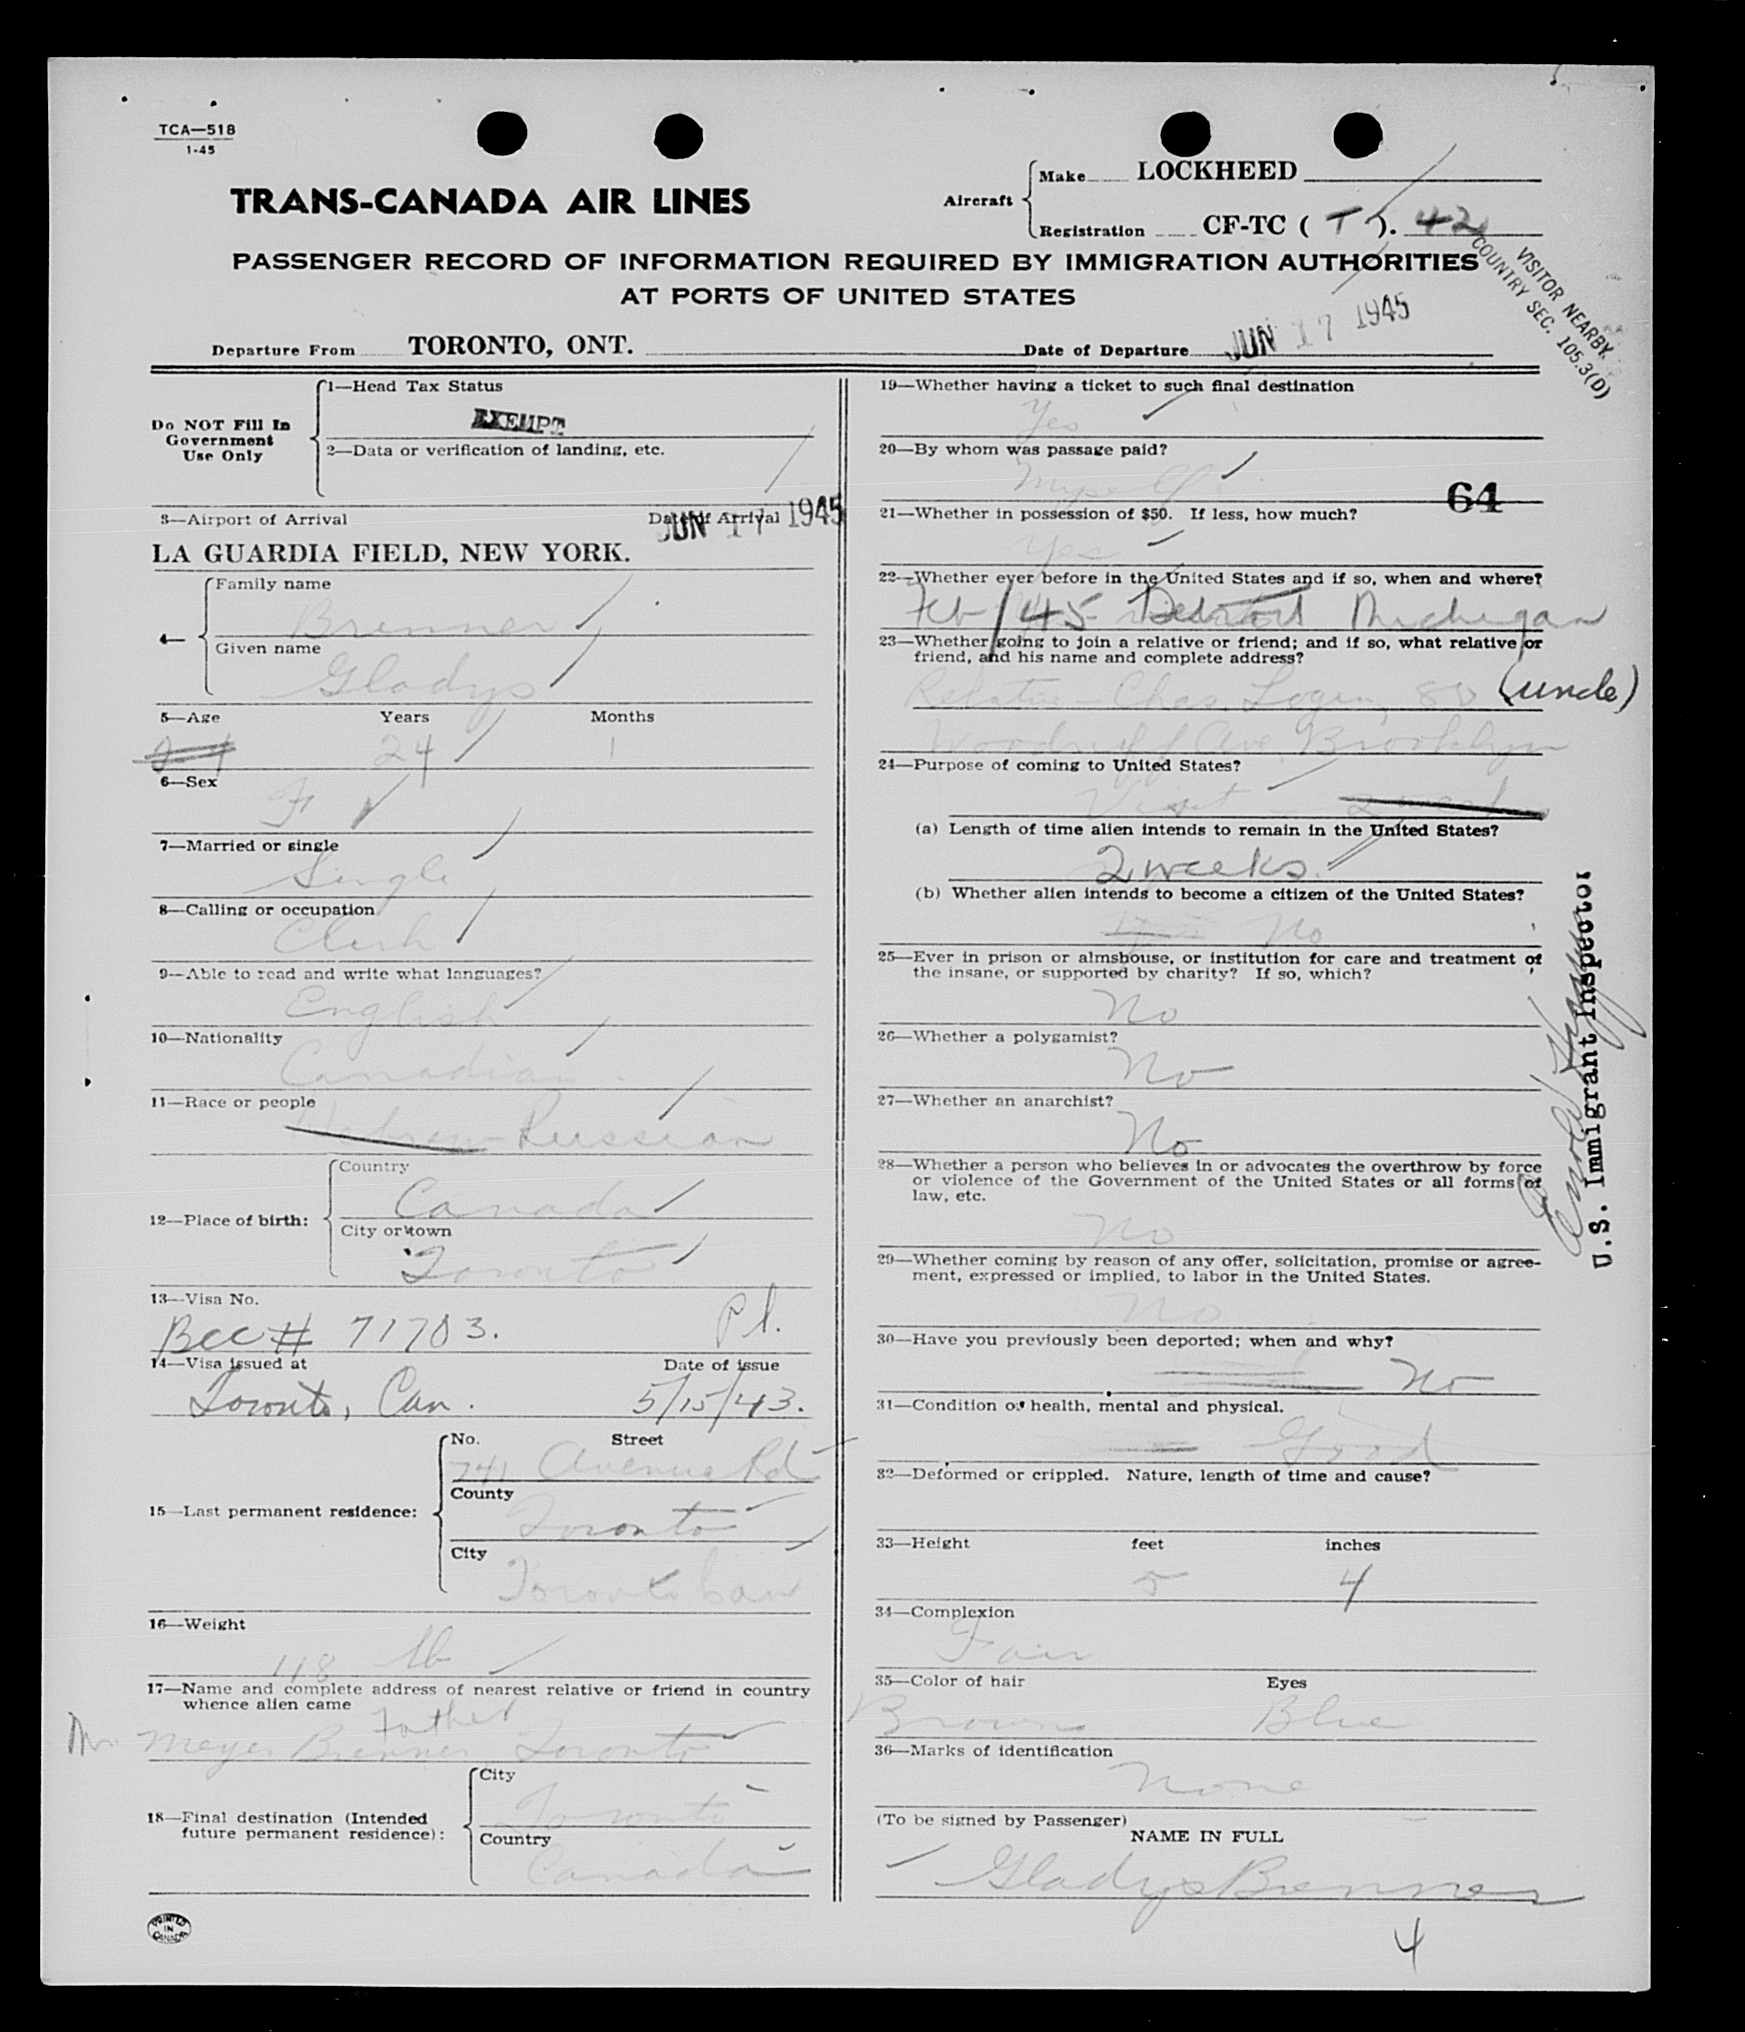 TCA—518
1-45
TRANS-CANADA AIR LINES
Aircraft
Make LOCKHEED
Registration CF-TC ( T ). 42
PASSENGER RECORD OF INFORMATION REQUIRED BY IMMIGRATION AUTHORITIES
AT PORTS OF UNITED STATES
VISITOR NEARBY
COUNTRY SEC. 105.3(D)
Departure From TORONTO, ONT. Date of Departure JUN 17 1945
Do NOT Fill In
Government
Use Only
1—Head Tax Status
EXEMPT
2—Data or verification of landing, etc.
3—Airport of Arrival Date of Arrival JUN 17 1945
LA GUARDIA FIELD, NEW YORK.
4—
Family name
Brenner
Given name
Gladys
5—Age Years Months
24 24 1
6—Sex
F
7—Married or single
Single
8—Calling or occupation
Clerk
9—Able to read and write what languages?
English
10—Nationality
Canadian
11—Race or people
Hebrew Russian
12—Place of birth:
Country
Canada
City or town
Toronto
13—Visa No.
Bcc # 71703. P1.
14—Visa issued at Date of issue
Toronto, Can. 5/15/43.
15—Last permanent residence:
No. Street
741 Avenue Rd
County
Toronto
City
Toronto Can
16—Weight
118 lb
17—Name and complete address of nearest relative or friend in country
whence alien came
Father
Mr Meyer Brenner Toronto
18—Final destination (Intended
future permanent residence):
City
Toronto
Country
Canada
PRINTED
IN
CANADA
19—Whether having a ticket to such final destination
Yes
20—By whom was passage paid?
Myself
64
21—Whether in possession of $50. If less, how much?
Yes
22—Whether ever before in the United States and if so, when and where?
Feb/45 Detroit Michigan
23—Whether going to join a relative or friend; and if so, what relative or
friend, and his name and complete address?
Relative - Chas. Logen, 80 (uncle)
Woodruff Ave Brooklyn
24—Purpose of coming to United States?
Visit - 2 weeks
(a) Length of time alien intends to remain in the United States?
2 weeks.
(b) Whether alien intends to become a citizen of the United States?
No
25—Ever in prison or almshouse, or institution for care and treatment of
the insane, or supported by charity? If so, which?
No
26—Whether a polygamist?
No
27—Whether an anarchist?
No
28—Whether a person who believes in or advocates the overthrow by force
or violence of the Government of the United States or all forms of
law, etc.
No
29—Whether coming by reason of any offer, solicitation, promise or agree-
ment, expressed or implied, to labor in the United States.
No
30—Have you previously been deported; when and why?
No
31—Condition of health, mental and physical.
Good
32—Deformed or crippled. Nature, length of time and cause?
33—Height feet inches
5 4
34—Complexion
Fair
35—Color of hair Eyes
Brown Blue
36—Marks of identification
None
(To be signed by Passenger)
NAME IN FULL
Gladys Brenner
4
U.S. Immigrant Inspector